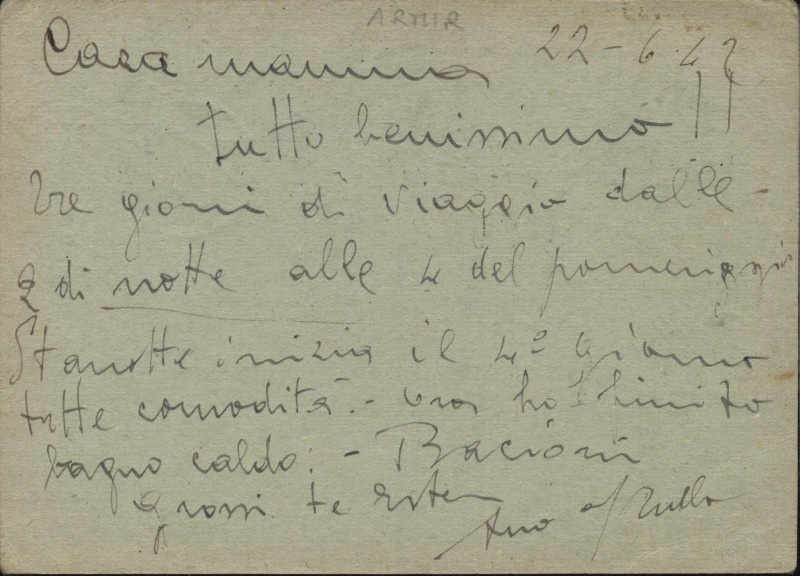 ARMIR
Cara mamma 22-6.42
tutto benissimo!!
Tre giorni di viaggio dalle
2 di notte alle 4 del pomeriggio
Stanotte inizia il 4º giorno
tutte comodità.- Ora ho finito
bagno caldo: - Bacioni
grossi te Ester
tuo